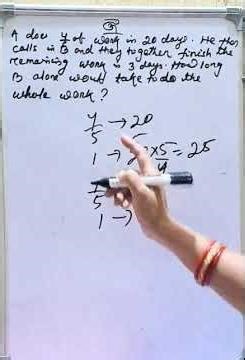 A does 4/5 of work in 20 days. He then
calls in B and they together finish the
remaining work in 3 days. How long
B alone would take to do the
whole work?
4/5 → 20
1 → 5/4 = 25
1/5
1 →